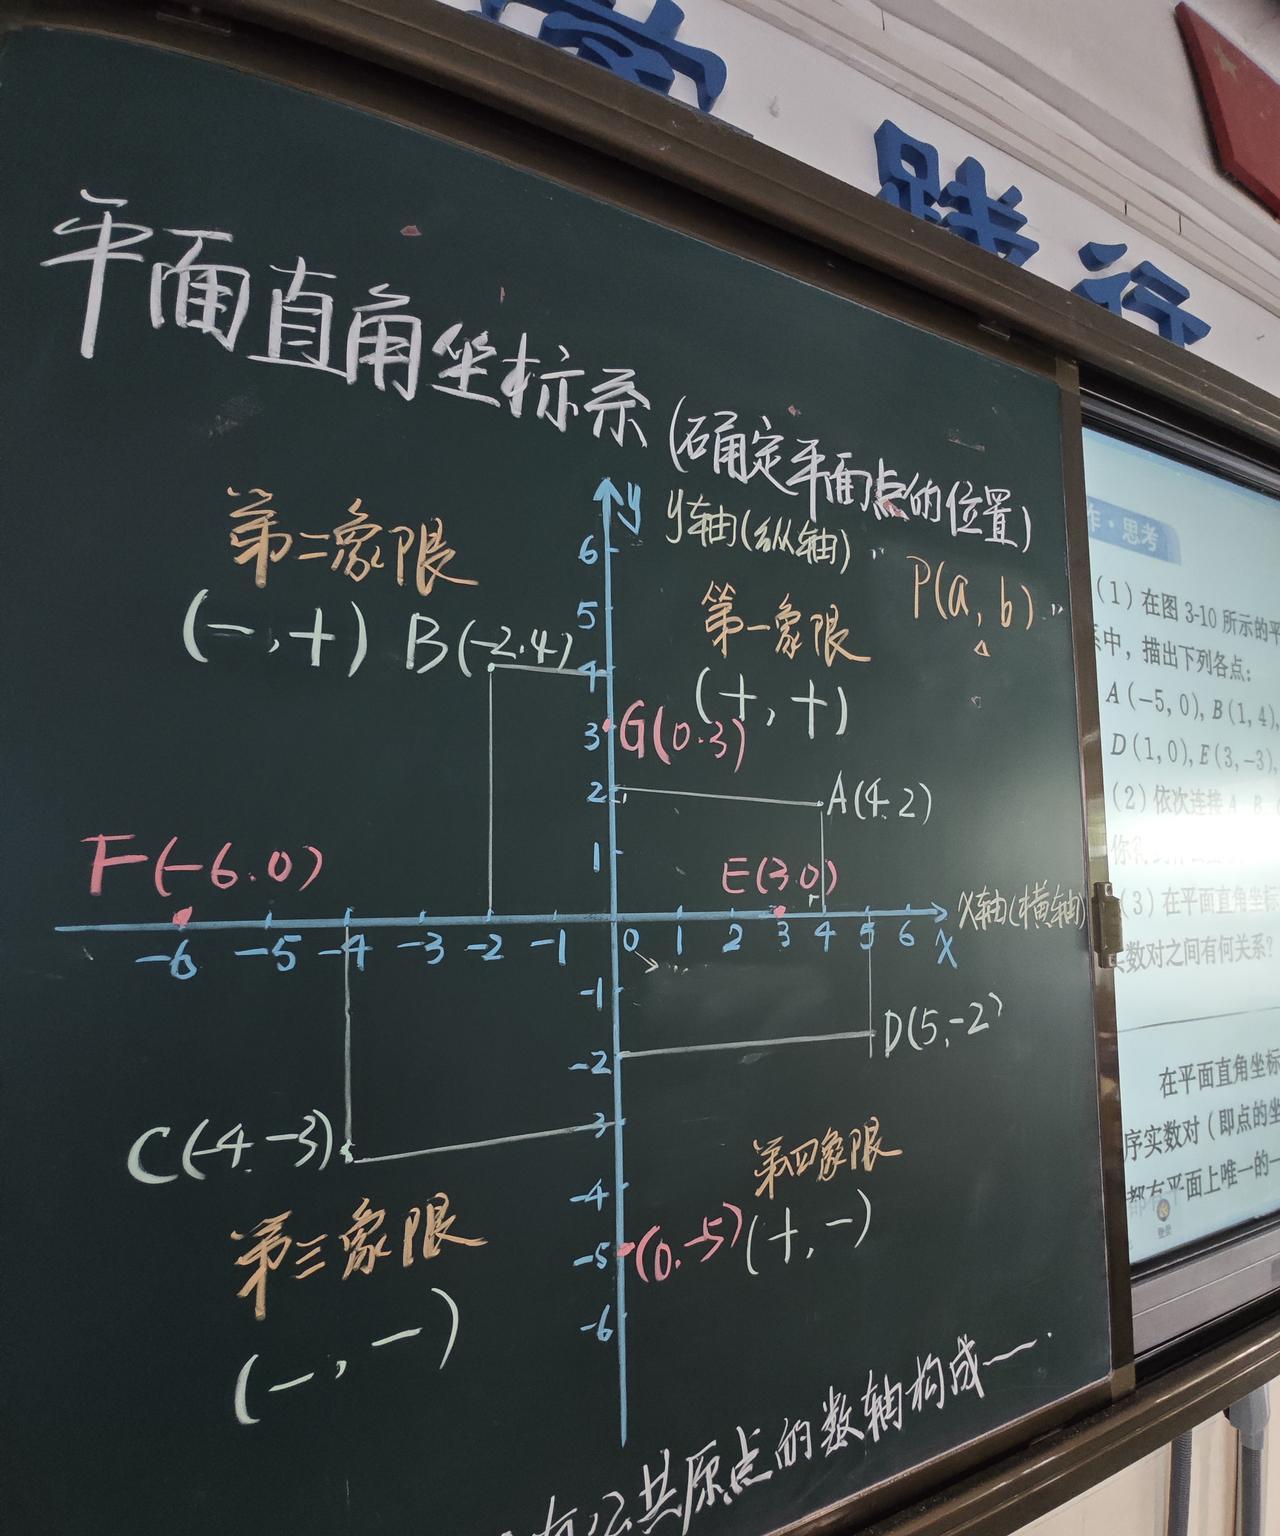 践行
平面直角坐标系(确定平面点的位置)
y
y轴(纵轴)
P(a,b)
第二象限
(-,+)
B(-2.4)
第一象限
(+,+)
6
5
4
G(0.3)
3
2
A(4.2)
1
F(-6.0)
E(3.0)
x轴(横轴)
-6 -5 -4 -3 -2 -1 0 1 2 3 4 5 6 x
-1
D(5,-2)
-2
C(-4.-3)
-3
第四象限
(+,-)
-4
第三象限
(-,-)
-5
(0.-5)
-6
有公共原点的数轴构成一
作·思考
(1)在图3-10所示的平
系中,描出下列各点:
A(-5,0),B(1,4),
D(1,0),E(3,-3),
(2)依次连接A,B,
(3)在平面直角坐标
实数对之间有何关系?
在平面直角坐标
序实数对(即点的坐
都有平面上唯一的一